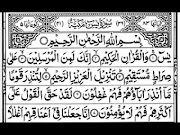 سورة يس مكية
بسم الله الرحمن الرحيم
يس والقرآن الحكيم إنك لمن المرسلين على
صراط مستقيم تنزيل العزيز الرحيم لتنذر قوما
ما أنذر آباؤهم فهم غفلون لقد حق القول على
أكثرهم فهم لا يؤمنون إنا جعلنا في أعناقهم أغللا